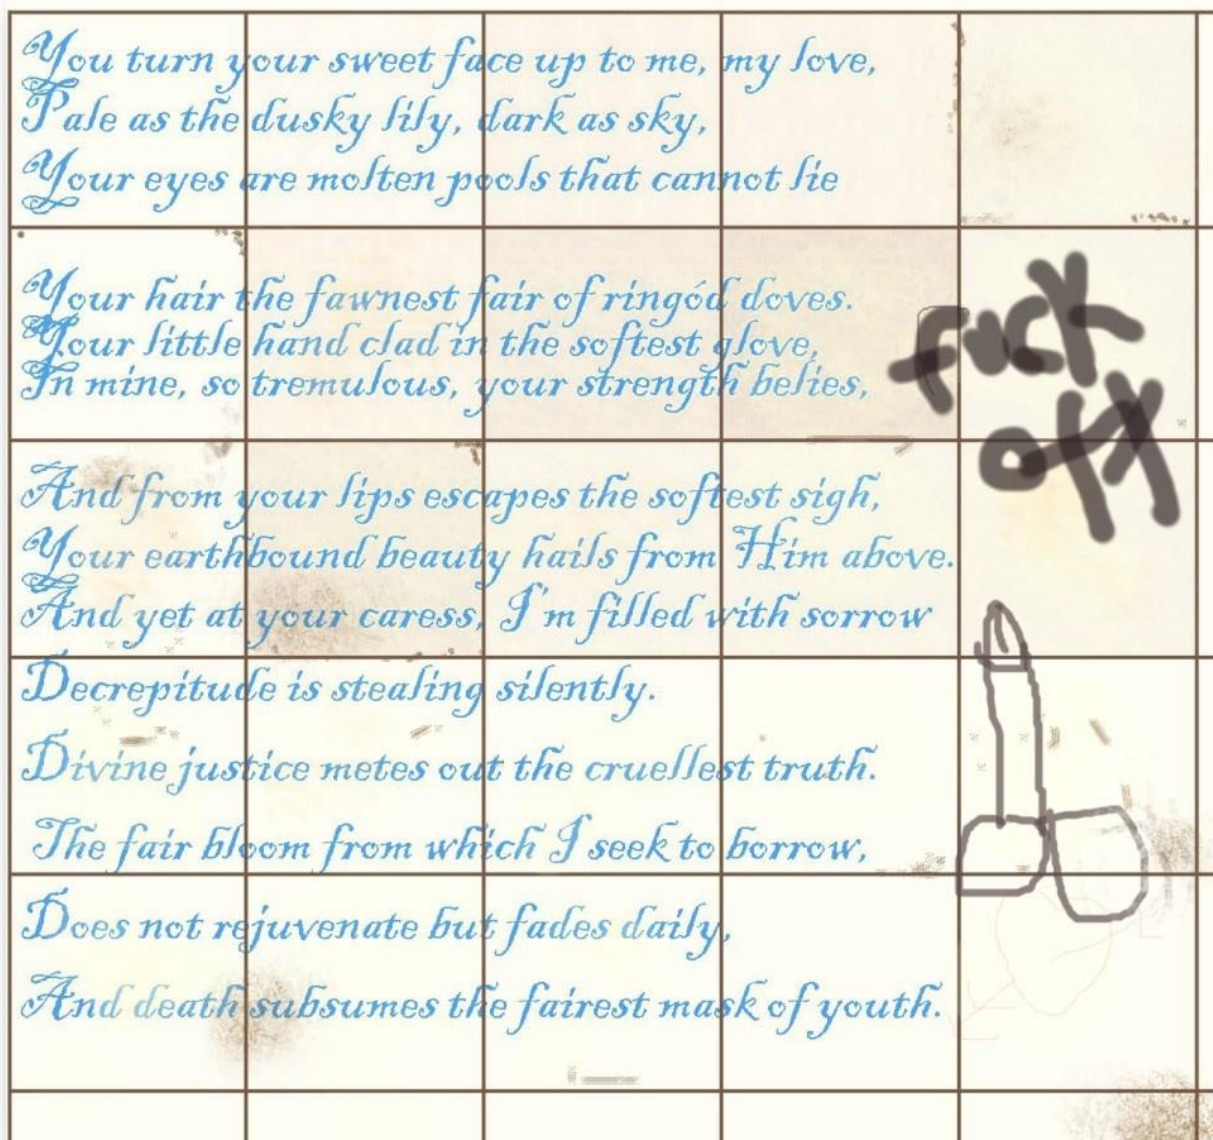 You turn your sweet face up to me, my love,
Pale as the dusky lily, dark as sky,
Your eyes are molten pools that cannot lie
Your hair the fawnest fair of ringód doves.
Your little hand clad in the softest glove,
In mine, so tremulous, your strength belies,
And from your lips escapes the softest sigh,
Your earthbound beauty hails from Him above.
And yet at your caress, I'm filled with sorrow
Decrepitude is stealing silently.
Divine justice metes out the cruellest truth.
The fair bloom from which I seek to borrow,
Does not rejuvenate but fades daily,
And death subsumes the fairest mask of youth.
Fuck
off